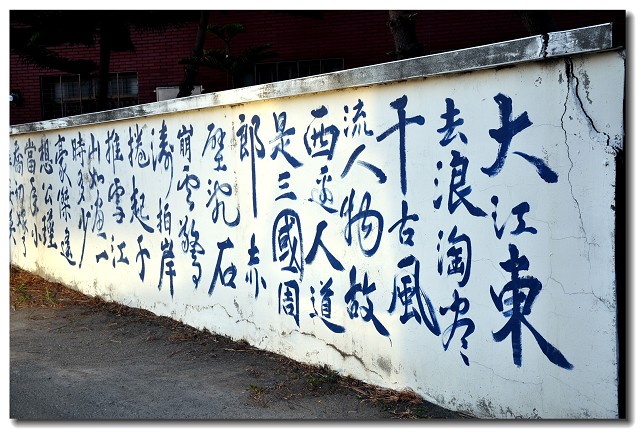 大江東
去浪淘盡
千古風
流人物故
西邊人道
是三國周
郎赤
壁亂石
崩雲驚
濤拍岸
捲起千
堆雪江
山如畫一
時多少
豪傑遙
想公瑾
當年小
喬初嫁